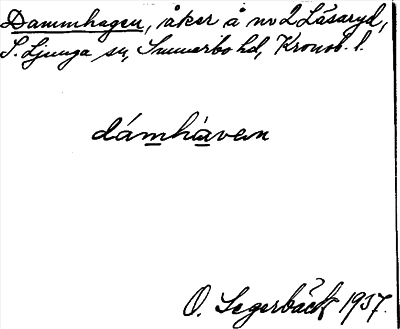 Dammhagen, åker å nr 2 Låsaryd,
S. Ljunga sn, Sunnerbo hd, Kronob. l.
dámhàven
O. Segerbäck 1937.